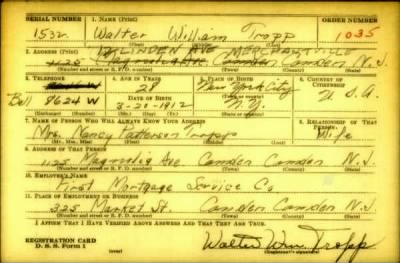 SERIAL NUMBER 1. NAME (Print) ORDER NUMBER
1532 Walter William Tropp 1035
LINDEN AVE MERCHANTVILLE
2. ADDRESS (Print)
1125 Magnolia Ave Camden Camden N.J.
(Number and street or R. F. D. number) (Town) (County) (State)
3. TELEPHONE 4. AGE IN YEARS 5. PLACE OF BIRTH 6. COUNTRY OF CITIZENSHIP
28 New York City
Bell 8624 W DATE OF BIRTH U.S.A.
3-28-1912 N.Y.
7. NAME OF PERSON WHO WILL ALWAYS KNOW YOUR ADDRESS 8. RELATIONSHIP OF THAT PERSON
Mrs. Nancy Patterson Tropp Wife
(Mr., Mrs., Miss) (First) (Middle) (Last)
9. ADDRESS OF THAT PERSON
1125 Magnolia Ave. Camden Camden N.J.
(Number and street or R. F. D. number) (Town) (County) (State)
10. EMPLOYER'S NAME
First Mortgage Service Co.
11. PLACE OF EMPLOYMENT OR BUSINESS
325 Market St. Camden Camden N.J.
(Number and street or R. F. D. number) (Town) (County) (State)
I AFFIRM THAT I HAVE VERIFIED ABOVE ANSWERS AND THAT THEY ARE TRUE.
REGISTRATION CARD
D. S. S. Form 1 Walter Wm. Tropp
(Registrant's signature)